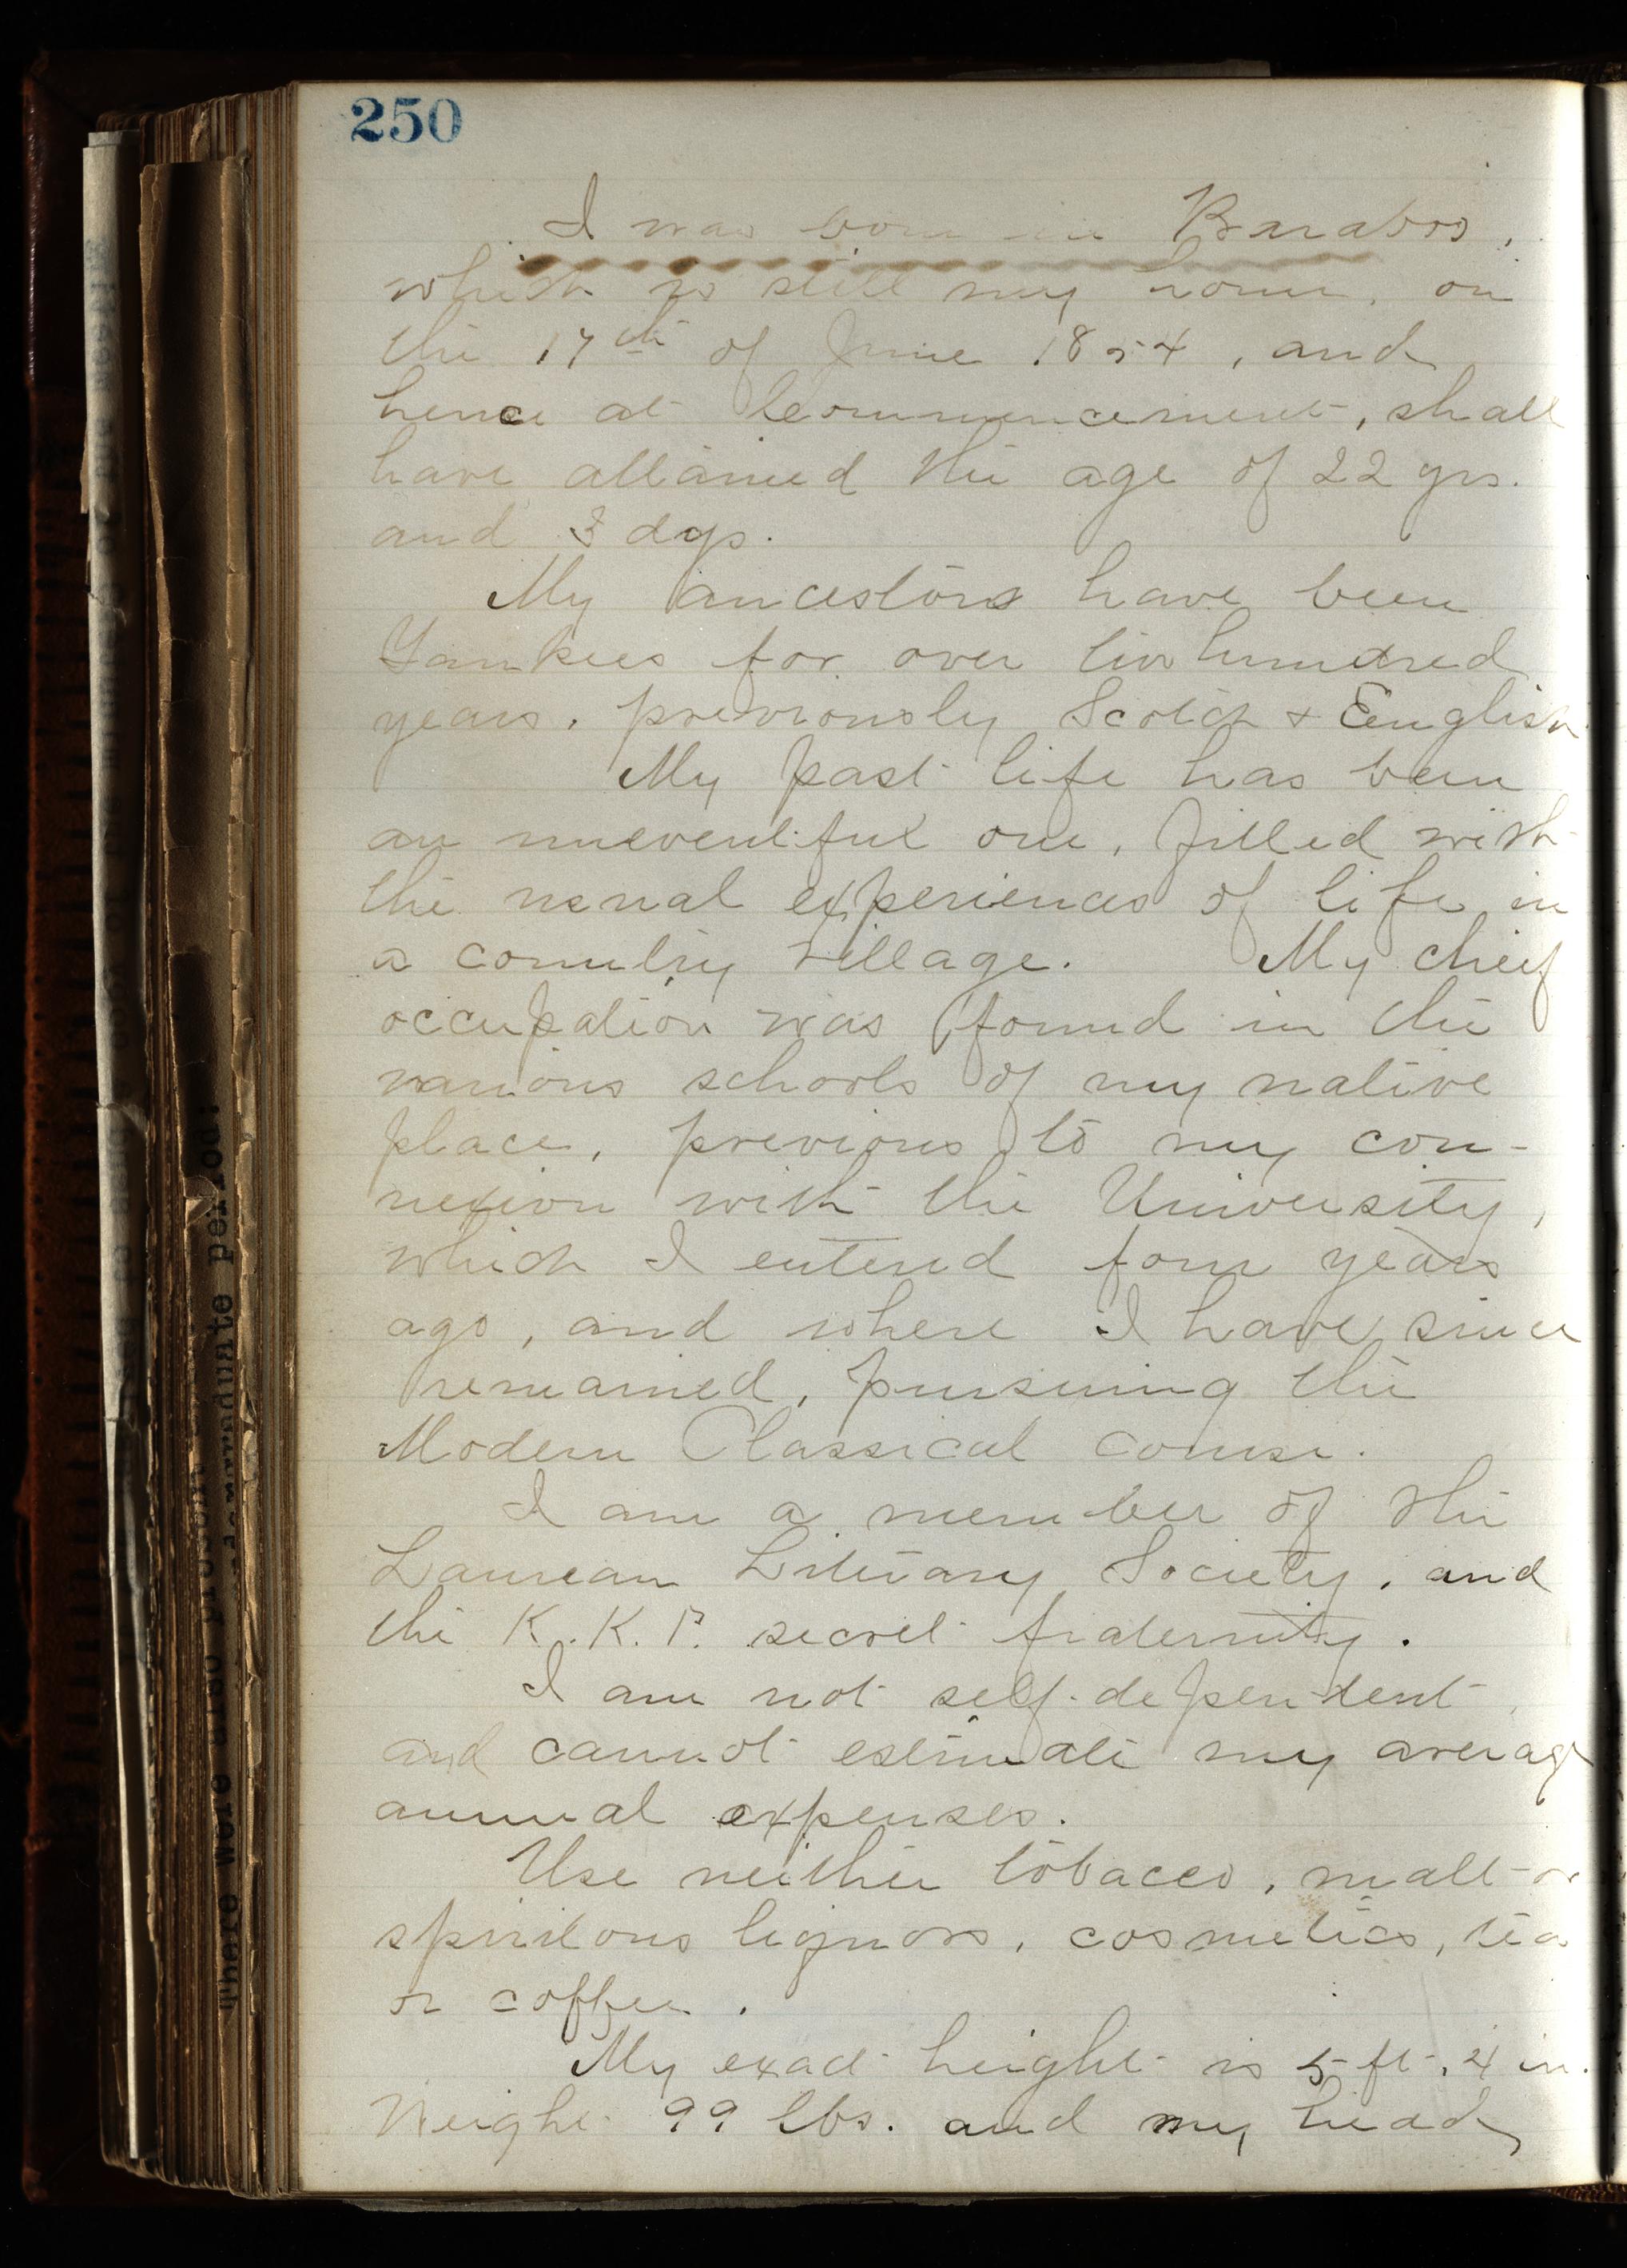 250
I was born in Baraboo,
which is still my home, on
the 17th of June 1854, and
hence at Commencement, shall
have attained the age of 22 yrs.
and 3 dys.
My ancestors have been
Yankees for over two hundred
years, previously Scotch & English.
My past life has been
an uneventful one, filled with
the usual experiences of life in
a country village. My chief
occupation was found in the
various schools of my native
place, previous to my con-
nexion with the University,
which I entered four years
ago, and where I have since
remained, pursuing the
Modern Classical course.
I am a member of the
Laurean Literary Society, and
the K. K. Γ. secret fraternity.
I am not self-dependent,
and cannot estimate my average
annual expenses.
Use neither tobacco, malt or
spiritous liquors, cosmetics, tea
or coffee.
My exact height is 5 ft. 4 in.
Weight 99 lbs. and my head
There were also present
undergraduate period: